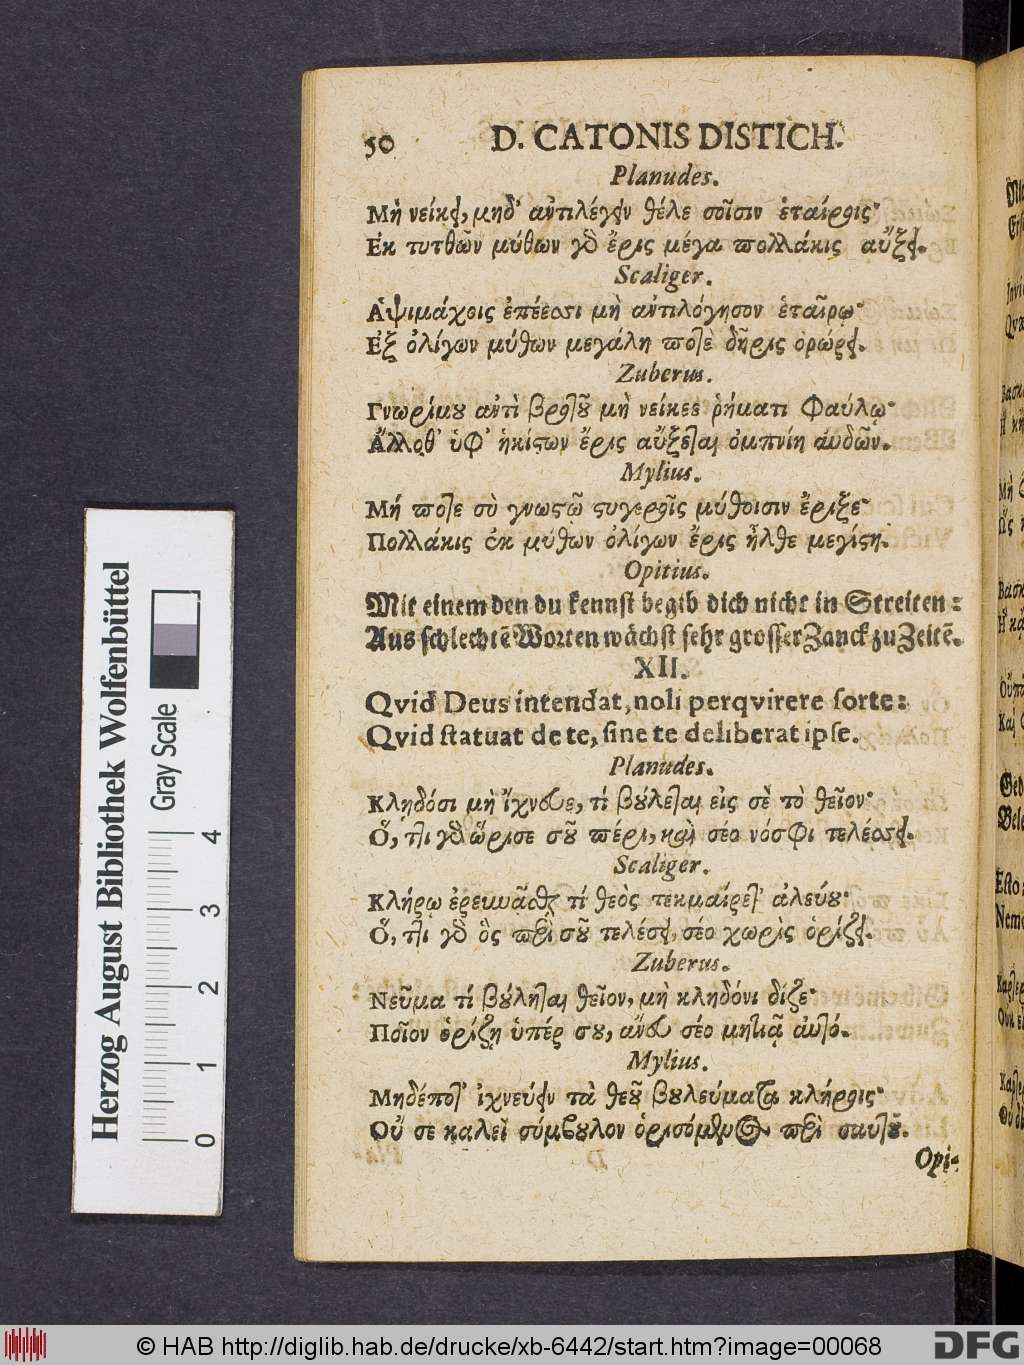 50 D. CATONIS DISTICH.
Planudes.
Μὴ νείκει, μηδ' ἀντιλέγειν θέλε σοῖσιν ἑταίροις·
Εκ τυτθῶν μύθων γὸ ἔρις μέγα πολλάκις αὔξει.
Scaliger.
Αἰψιμάχοις ἐπέεσσι μὴ ἀντιλόγησον ἑταίρῳ·
Ἐξ ὀλίγων μύθων μεγάλη ποτὲ δῆρις ὀρώρει.
Zuberus.
Γνωρίμου ἀντὶ βροτοῦ μὴ νείκεε ῥήματι φαύλῳ·
Ἄλλοθ' ὑφ' ἡκίστων ἔρις αὔξεται ὀμπνίη αὐδῶν.
Mylius.
Μή ποτε σὺ γνωστῷ στυγεροῖς μύθοισιν ἔριξε·
Πολλάκις ἐκ μύθων ὀλίγων ἔρις ἦλθε μεγίστη.
Opitius.
Mit einem den du kennst begib dich nicht in Streiten:
Aus schlechtē Worten wächst sehr grosser Zanck zu Zeitē.
XII.
Qvid Deus intendat, noli perqvirere ſorte:
Qvid ſtatuat de te, ſine te deliberat ipſe.
Planudes.
Κληδόσι μὴ ἴχνευε, τί βούλεται εἰς σὲ τὸ θεῖον·
Ὅ, τι γὸ ὥρισε σοῦ πέρι, καὶ σέο νόσφι τελέσσει.
Scaliger.
Κλήρῳ ἐρευνᾶσθαι τί θεὸς τεκμαίρετ' ἀλεύου·
Ὅ, τι γὸ ὃς περὶ σοῦ τελέσει, σέο χωρὶς ὁρίζει.
Zuberus.
Νεῦμα τί βούληται θεῖον, μὴ κληδόνι δίζε·
Ποῖον ὁρίζῃ ὑπέρ σου, ἄνευ σέο μητιᾷ αὐτό.
Mylius.
Μηδέποτ' ἰχνεύειν τὰ θεοῦ βουλεύματα κλήροις·
Οὔ σε καλεῖ σύμβουλον ὁρισόμενος περὶ σαυτοῦ.
Opi-
Herzog August Bibliothek Wolfenbüttel
Gray Scale
0 1 2 3 4
© HAB http://diglib.hab.de/drucke/xb-6442/start.htm?image=00068
DFG